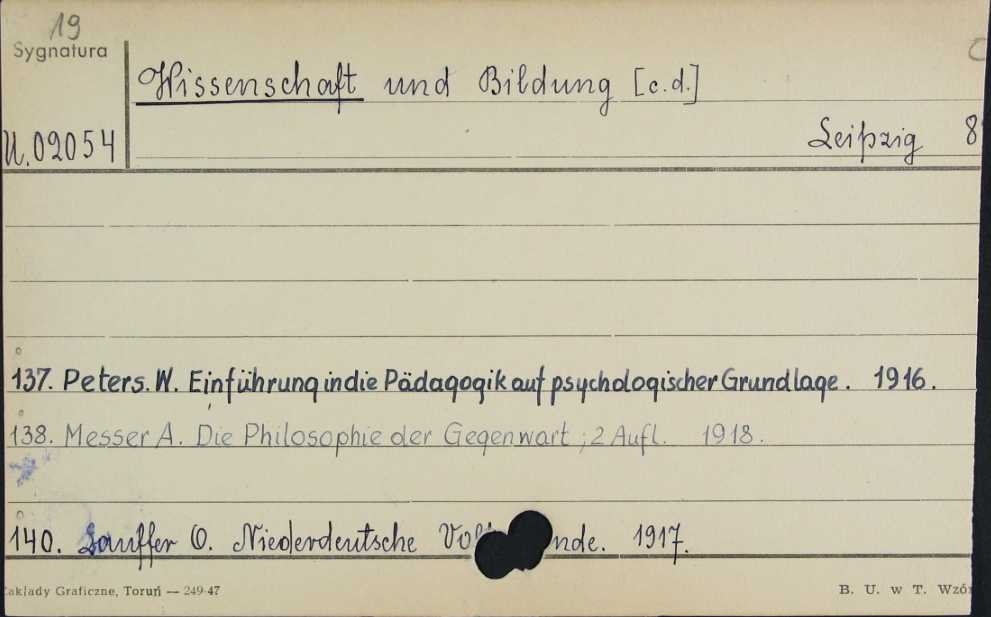 19
Sygnatura
Wissenschaft und Bildung [c.d.]
U.02054
Leipzig 8
137. Peters. W. Einführung in die Pädagogik auf psychologischer Grundlage. 1916.
138. Messer A. Die Philosophie der Gegenwart; 2 Aufl. 1918.
140. Lauffer O. Niederdeutsche 1917.
Zakłady Graficzne, Toruń — 249-47
B. U. w T. Wzór